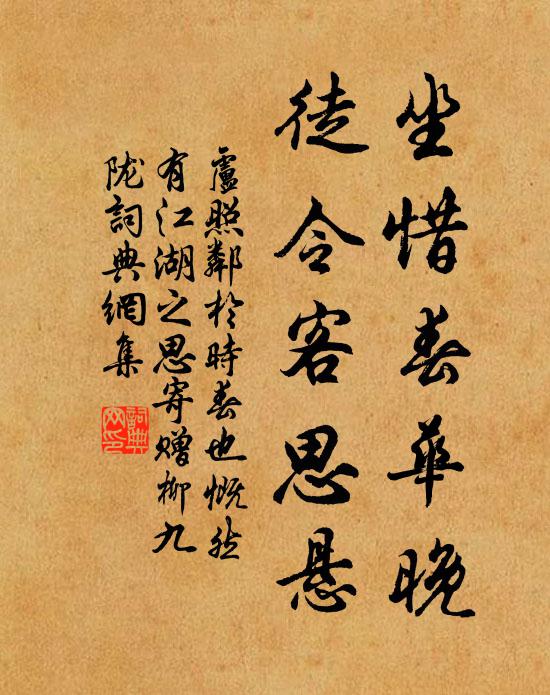 坐惜春華晚
徒令客思悬
盧照鄰於時春也慨然
有江湖之思寄赠柳九
陇詞典網集
詞典
网印